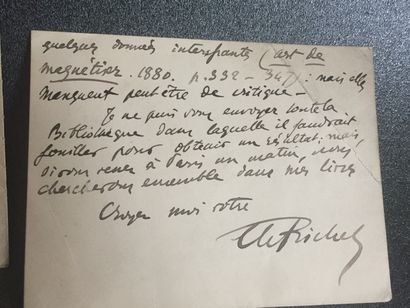 quelques données intéressantes (art de
magnétiser. 1880. p. 338 - 347) : mais elles
manquent peut être de critique -
Je ne puis vous envoyer toute la
Bibliothèque dans laquelle il faudrait
fouiller pour obtenir un résultat : mais,
si vous venez à Paris un matin, nous
chercherons ensemble dans mes livres
Croyez moi votre
Ch Richet